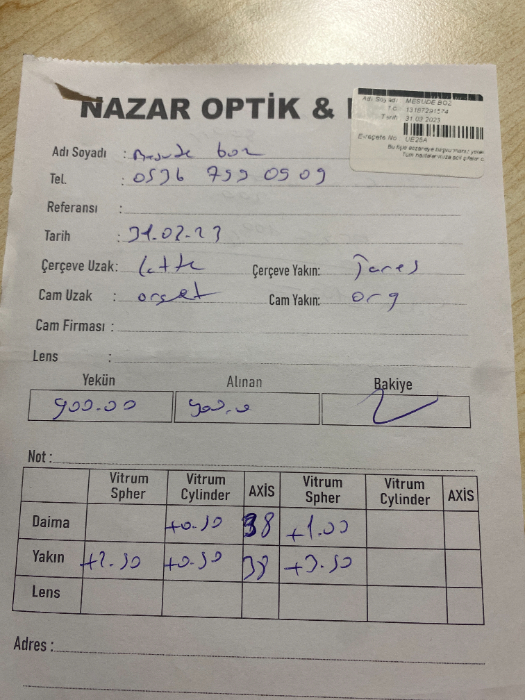 NAZAR OPTİK &
Adı Soyadı: MESUDE BOZ
Tarih: 31.03.2023
UE25A
Adı Soyadı : Mesude boz
Tel. : 0536 799 0509
Referansı :
Tarih : 31.03.23
Çerçeve Uzak: Çerçeve Yakın:
Cam Uzak : Cam Yakın: org
Cam Firması :
Lens :
Yekün Alınan Bakiye
900.00 900.0
Not :
Vitrum Spher Vitrum Cylinder AXİS Vitrum Spher Vitrum Cylinder AXİS
Daima +0.50 38 +1.00
Yakın +2.50 +0.50 38 +3.50
Lens
Adres :